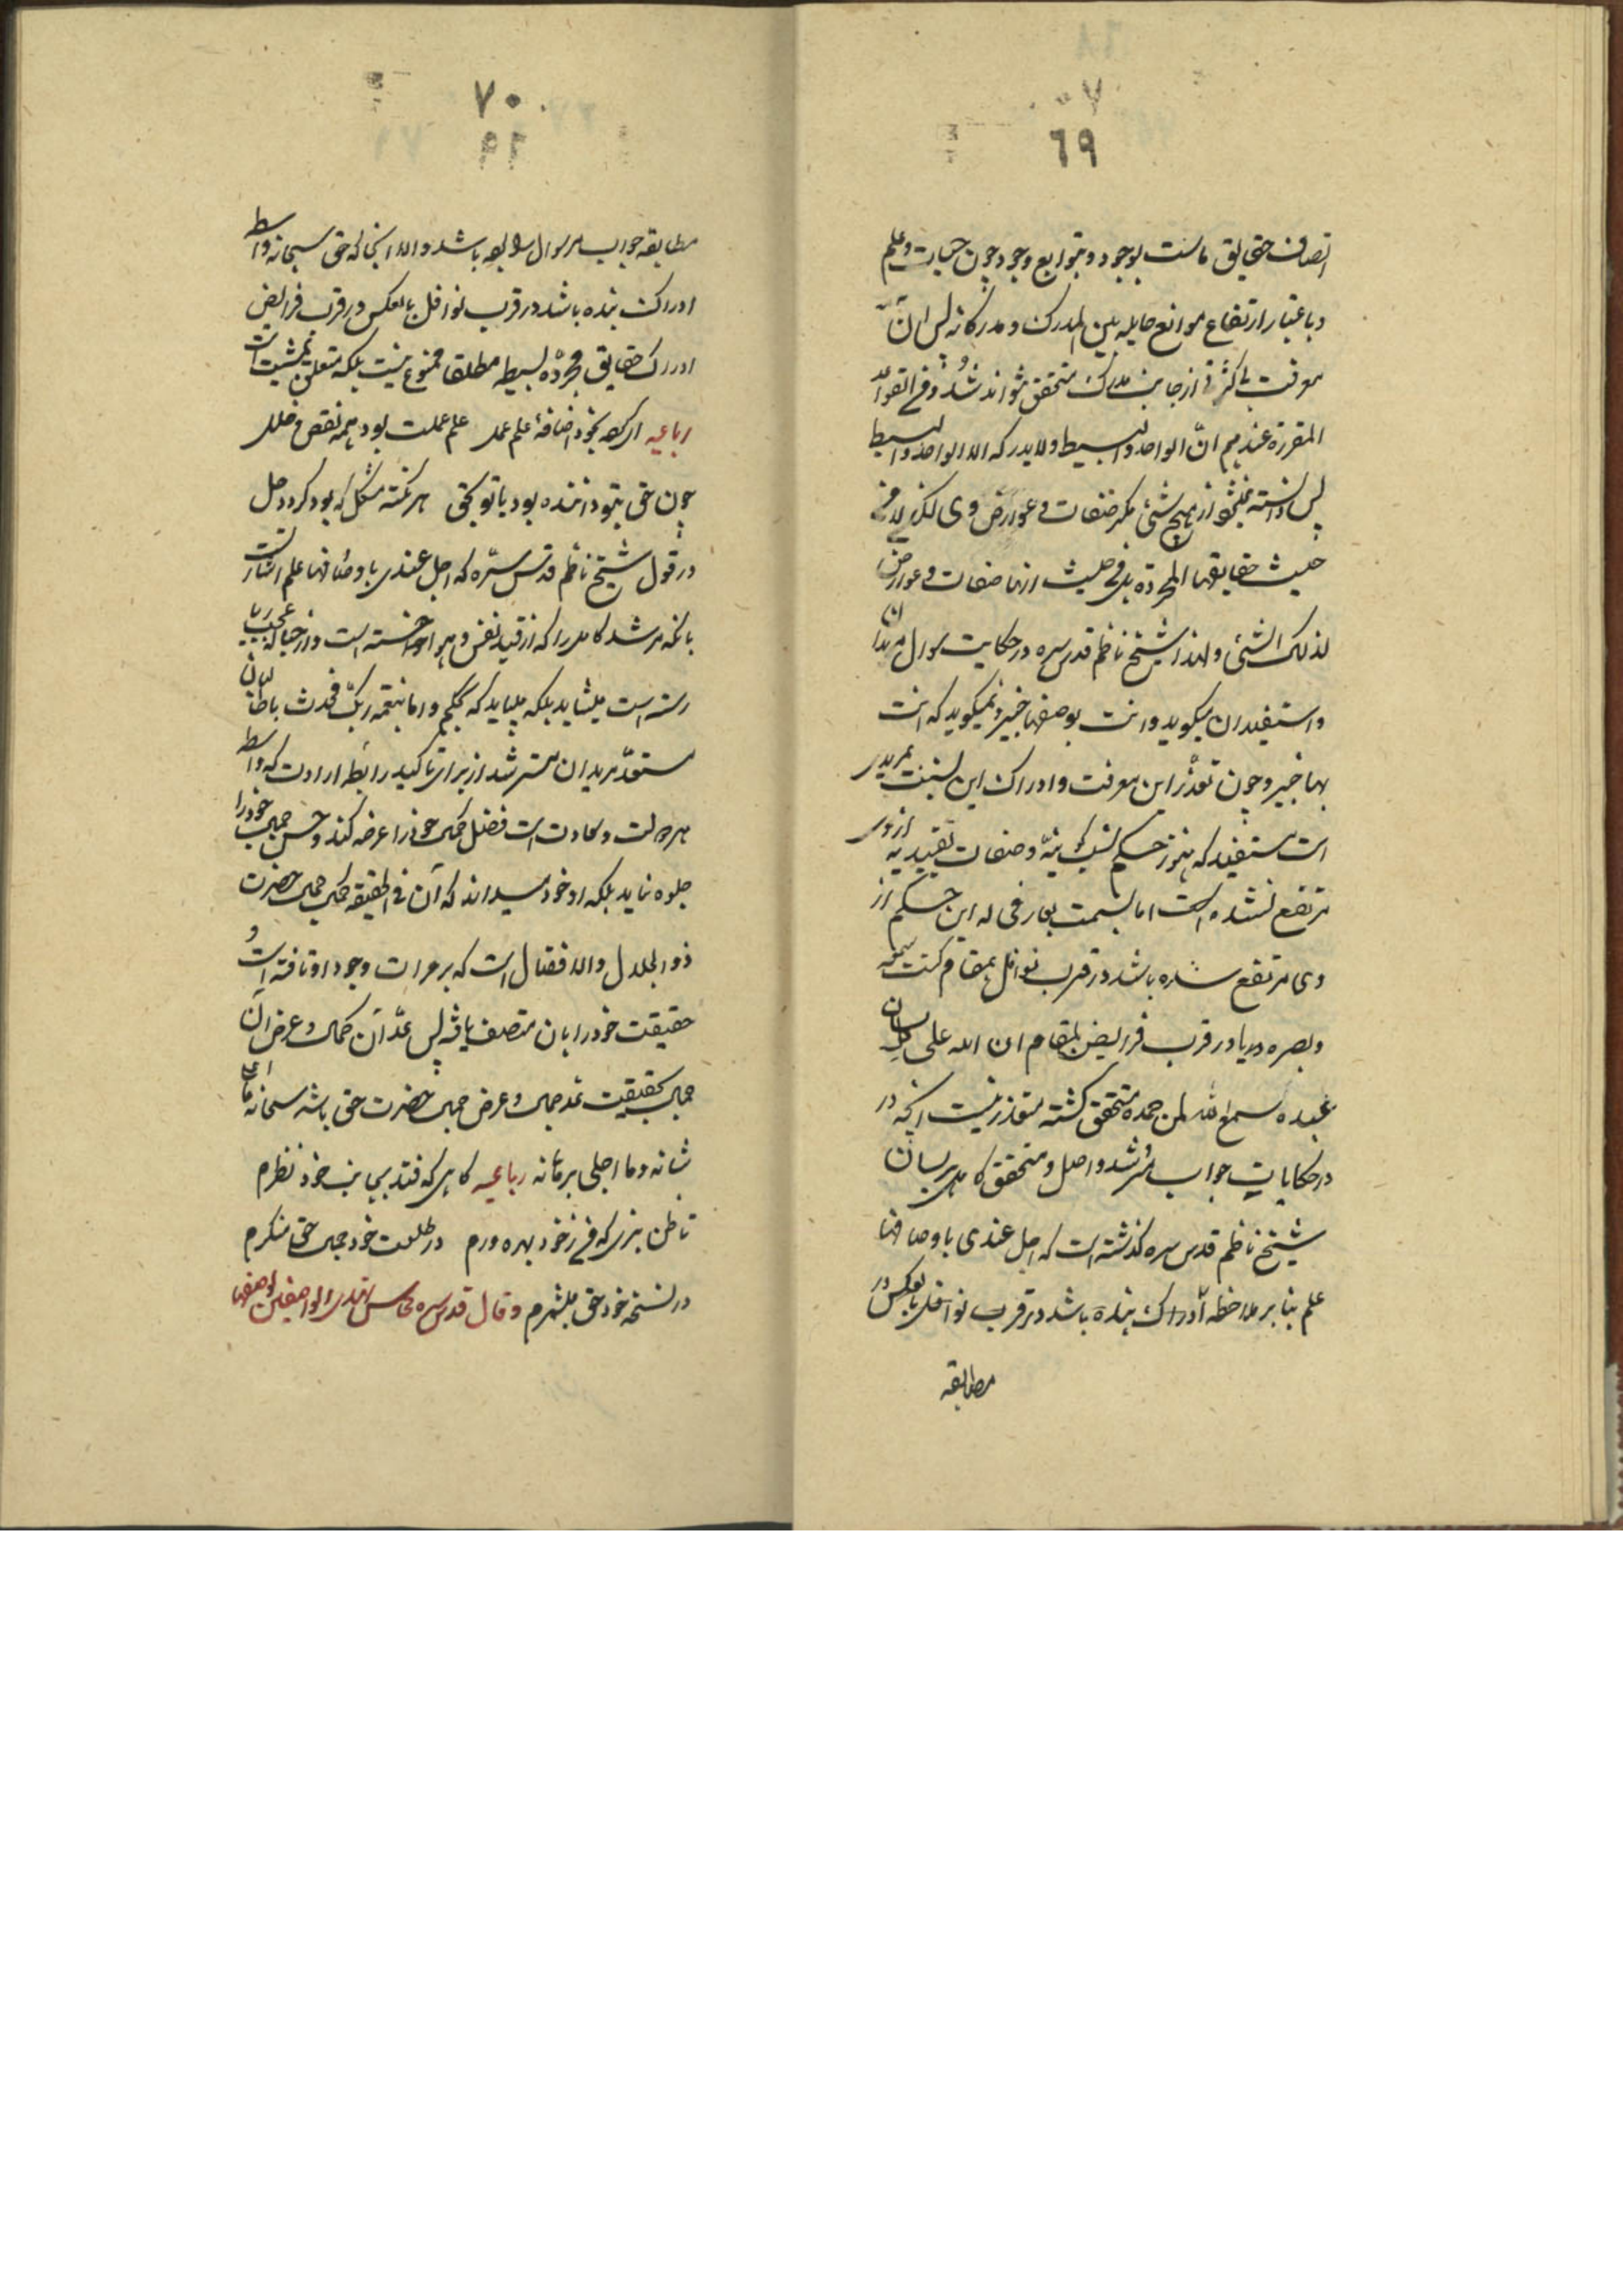 ٦٩
اتصاف حقایق ماست بوجود و بتوابع وجود چون حیات و علم
و باعتبار ارتفاع موانع حایله بین المدرک و مدرکاته پس از آن
معرفت از جانب مدرک متحقق نتواند شد و فی القواعد
المقررة عندهم انّ الواحد والبسیط لا یدرکه الا الواحد والبسیط
پس دانسته نمیشود از هیچ شئی مگر صفات و عوارض وی لکن لا من
حیث حقایقها المجردة بل من حیث انها صفات و عوارض
لذلک الشئ و لهذا شیخ ناظم قدس سره در حکایت سوال مریدان
و مستفیدان میگوید و انت بوصفها خبیر و نمیگوید که انت
بها خبیر و چون تعذر این معرفت و ادراک این نسبت بمریدی
است مستفید که هنوز حکم نسب کونیه و صفات تقییدیه از وی
مرتفع نشده است اما نسبت بعارفی که این حکم از
وی مرتفع شده باشد در قرب نوافل بمقام کنت سمعه
و بصره و یا در قرب فرایض بمقام ان الله علی لسان
عبده سمع الله لمن حمده متحقق گشته متعذر نیست آنچه در
در حکایات جواب مرشد واصل و متحقق کامل بر لسان
شیخ ناظم قدس سره گذشته است که اجل عندی باوصافها
علم بنا بر ملاحظه ادراک بنده باشد در قرب نوافل بالعکس در
مطابقه
٧٠
مطابقه جواب مر سوال را باشد والا آنجا که حق سبحانه واسطه
ادراک بنده باشد در قرب نوافل بالعکس در قرب فرایض
ادراک حقایق مجرده بسیطه مطلقا ممنوع نیست بلکه متعلق بمشیت است
رباعیه ای کرده بخود اضافهٔ علم و عمل علم و عملت بود همه نقص و خلل
چون حق بتو داننده بود یا تو بحق هر نکته مشکل که بود گردد حل
در قول شیخ ناظم قدس سرّه که اجل عندی باوصافها علم اشارتست
بانکه مرشد کامل را که از قید نفس و هوا خاسته است و از حبایل عجب و ریا
رسته است میشاید بلکه میباید که بحکم و اما بنعمة ربّک فحدث با طالبان
مستعدّ و مریدان مسترشد از برای تاکید رابطه ارادت که واسطه
هر دولت و سعادت است فضل و کمال خود را عرضه کند و حسن و جمال خود را
جلوه نماید بلکه او خود میداند که آن فی الحقیقة کمال و جمال حضرت
ذو الجلال والافضال است که بر مرات وجود او تافته است و
حقیقت خود را بان متصف یافته پس عدّ آن کمال و عرض آن
جمال بحقیقت عد جمال و عرض جمال حضرت حق باشد سبحانه ما اعلی
شانه و ما اجلی برهانه رباعیه گاهی که فتد بجانب خود نظرم
تا ظن نبری که من ز خود بهره ورم در طلعت خود جمال حق مینگرم
در نسخه خود حق میشمرم و قال قدس سره محاسن تهدی الواصفین لوصفها